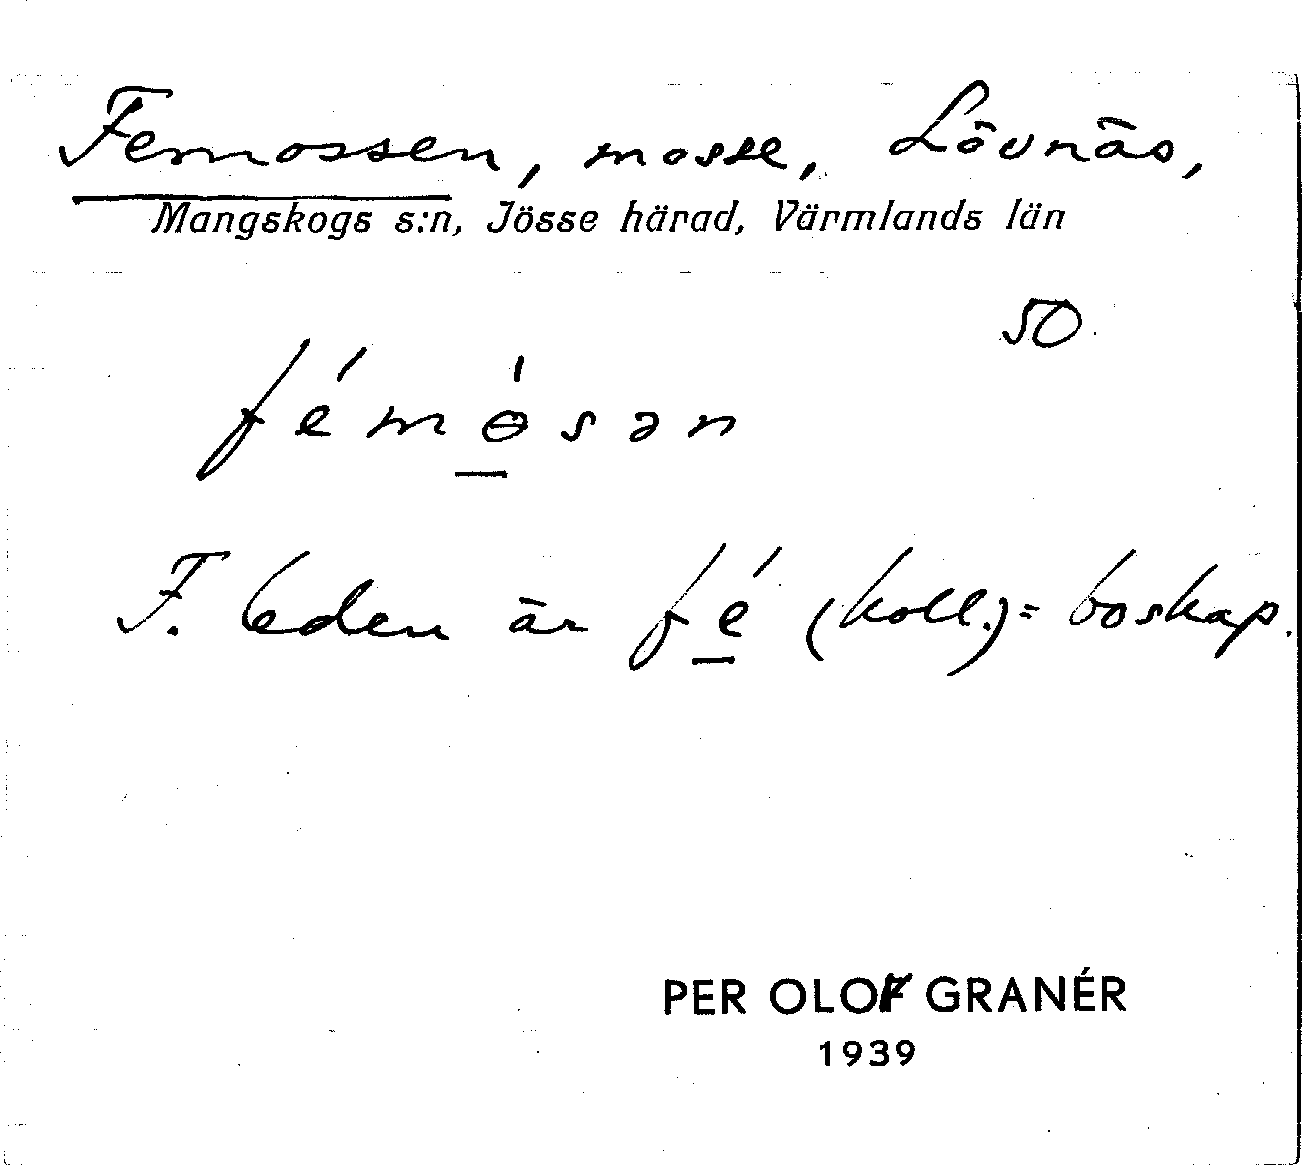 Femossen, mosse, Lövnäs,
Mangskogs s:n, Jösse härad, Värmlands län
50
fémɵ̲́sən
F. leden är fé̲ (koll.) = boskap.
PER OLOF GRANÉR
1939